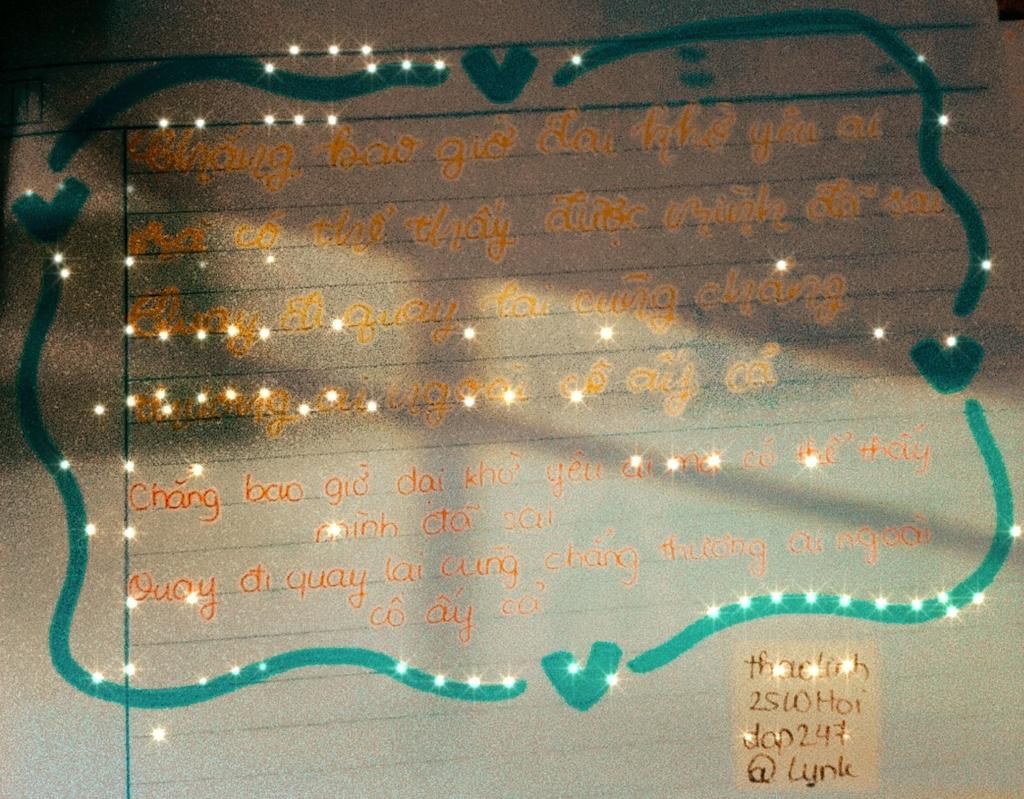 Chẳng bao giờ dại khờ yêu ai
mà có thể thấy được mình đã sai
Quay đi quay lại cũng chẳng
thương ai ngoài cô ấy cả
Chẳng bao giờ dại khờ yêu ai mà có thể thấy
mình đã sai
Quay đi quay lại cũng chẳng thương ai ngoài
cô ấy cả
thaolinh
2510Hoi
dap247
@Lynk